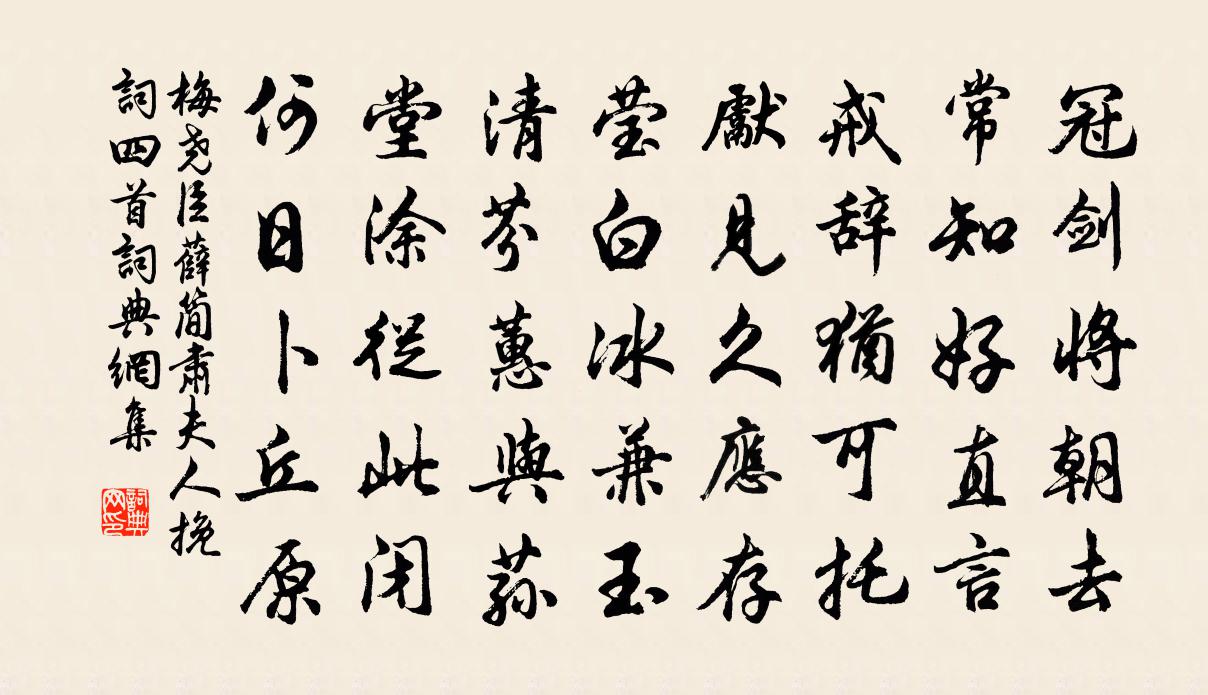 冠剑将朝去
常知好直言
戒辞犹可托
獻見久應存
莹白冰兼玉
清芬蕙與荪
堂涂従此闭
何日卜丘原
梅尧臣薛簡肃夫人挽
詞四首詞典網集
詞典网印